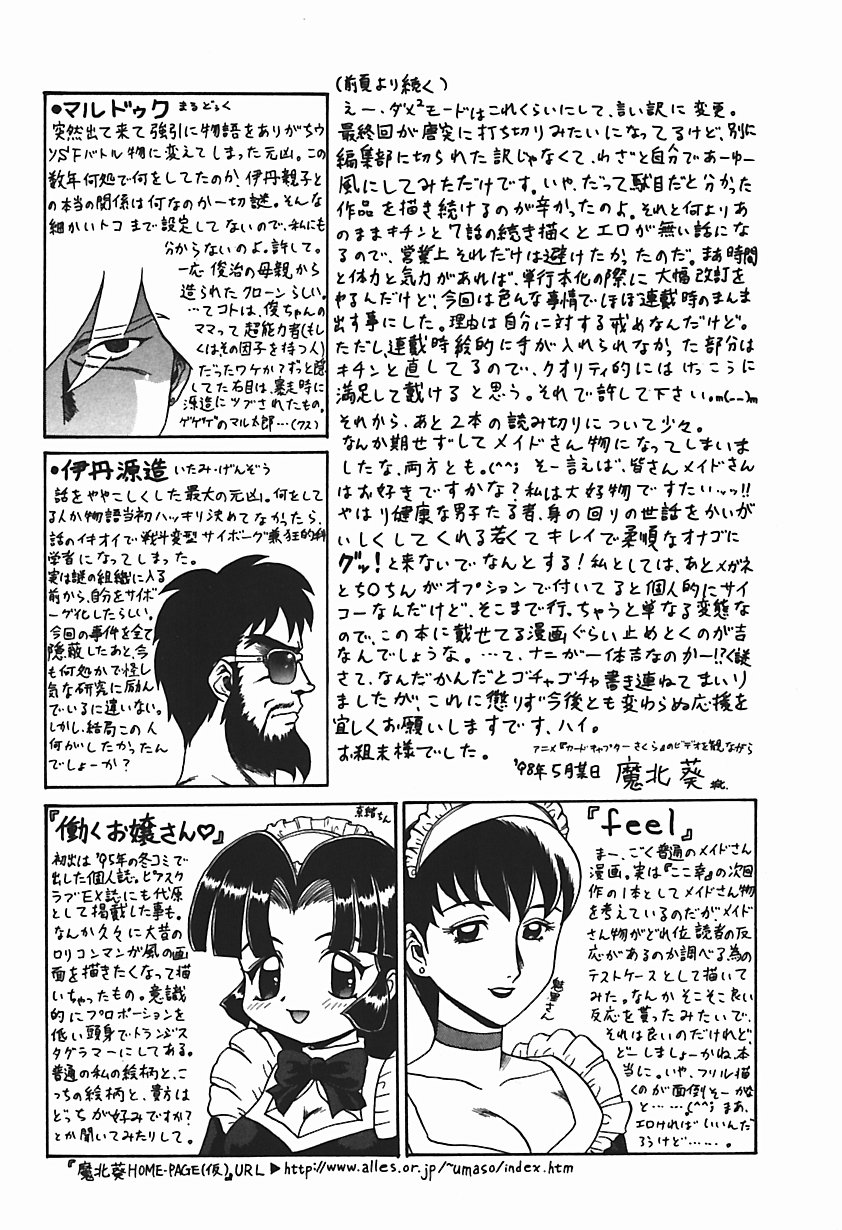 (前頁より続く)
えー、ダメ²モードはこれくらいにして、言い訳に変更。
最終回が唐突に打ち切りみたいになってるけど、別に
編集部に切られた訳じゃなくて、わざと自分であーゆー
風にしてみただけです。いや、だって駄目だと分かった
作品を描き続けるのが辛かったのよ。それと何よりあ
のままキチンと7話の続き描くとエロが無い話にな
るので、営業上それだけは避けたかったのだ。まあ時間
と体力と気力があれば、単行本化の際に大幅改訂を
やるんだけど、今回は色んな事情でほぼ連載時のまんま
出す事にした。理由は自分に対する戒めなんだけど。
ただし、連載時絵的に手が入れられなかった部分は
キチンと直してるので、クオリティ的にはけっこうに
満足して戴けると思う。それで許して下さい。m(__)m
それから、あと2本の読み切りについて少々。
なんか期せずしてメイドさん物になってしまいま
したな、両方とも。(^^; そー言えば、皆さんメイドさん
はお好きですかな?私は大好物ですたいっっ!!
やはり健康な男子たる者、身の回りの世話をかいが
いしくしてくれる若くてキレイで柔順なオナゴに
グッ!と来ないでなんとする!私としては、あとメガネ
とち○ちんがオプションで付いてると個人的にサイ
コーなんだけど、そこまで行っちゃうと単なる変態な
ので、この本に載せてる漫画ぐらい止めとくのが吉
なんでしょうな。…て、ナニが一体吉なのかー!?く謎
さて、なんだかんだとゴチャゴチャ書き連ねてまいり
ましたが、これに懲りず今後とも変わらぬ応援を
宜しくお願いしますです、ハイ。
お粗末様でした。
アニメ『カードキャプターさくら』のビデオを観ながら
'98年5月某日 魔北葵
●マルドゥク まるどぅく
突然出て来て強引に物語をありがちウ
ソSFバトル物に変えてしまった元凶。この
数年何処で何をしてたのか、伊丹親子と
の本当の関係は何なのか一切謎。そんな
細かいトコまで設定してないので、私にも
分からないのよ。許して。
一応俊治の母親から
造られたクローンらしい。
…てコトは、俊ちゃんの
ママって超能力者(もし
くは、その因子を持つ人)
だったワケか?ずっと隠
してた右目は、暴走時に
源造にツブされたもの。
ゲゲゲのマル太郎…(クス)
●伊丹源造 いたみ・げんぞう
話をややこしくした最大の元凶。何をして
る人か物語当初ハッキリ決めてなかったら、
話のイキオイで戦斗変型サイボーグ兼狂的科
学者になってしまった。
実は謎の組織に入る
前から、自分をサイボ
ーグ化したらしい。
今回の事件を全て
隠蔽したあと、今
も何処かで怪し
気な研究に励ん
でいるに違いない。
しかし、結局この人
何がしたかったん
でしょーか?
『働くお嬢さん♡』
初出は'95年の冬コミで
出した個人誌。ピアスク
ラブEX誌にも代原
として掲載した事も。
なんか久々に大昔の
ロリコンマンガ風の画
面を描きたくなって描
いちゃったもの。意識
的にプロポーションを
低い頭身でトランジス
タグラマーにしてある。
普通の私の絵柄と、こ
っちの絵柄と、貴方は
どっちが好みですか?
とか聞いてみたりして。
『feel』
まー、ごく普通のメイドさん
漫画。実は『ここ幸』の次回
作の1本としてメイドさん物
を考えているのだが、メイド
さん物がどれ位読者の反
応があるのか調べる為の
テストケースとして描いて
みた。なんかそこそこ良い
反応を貰ったみたいで、
それは良いのだけれど、
どーしましょーかね、本
当に。いや、フリル描
くのが面倒そーかな
と……。(^^; まあ、
エロければいいんだ
ろうけど……。
『魔北葵HOME-PAGE(仮)』URL ▶http://www.alles.or.jp/~umaso/index.htm